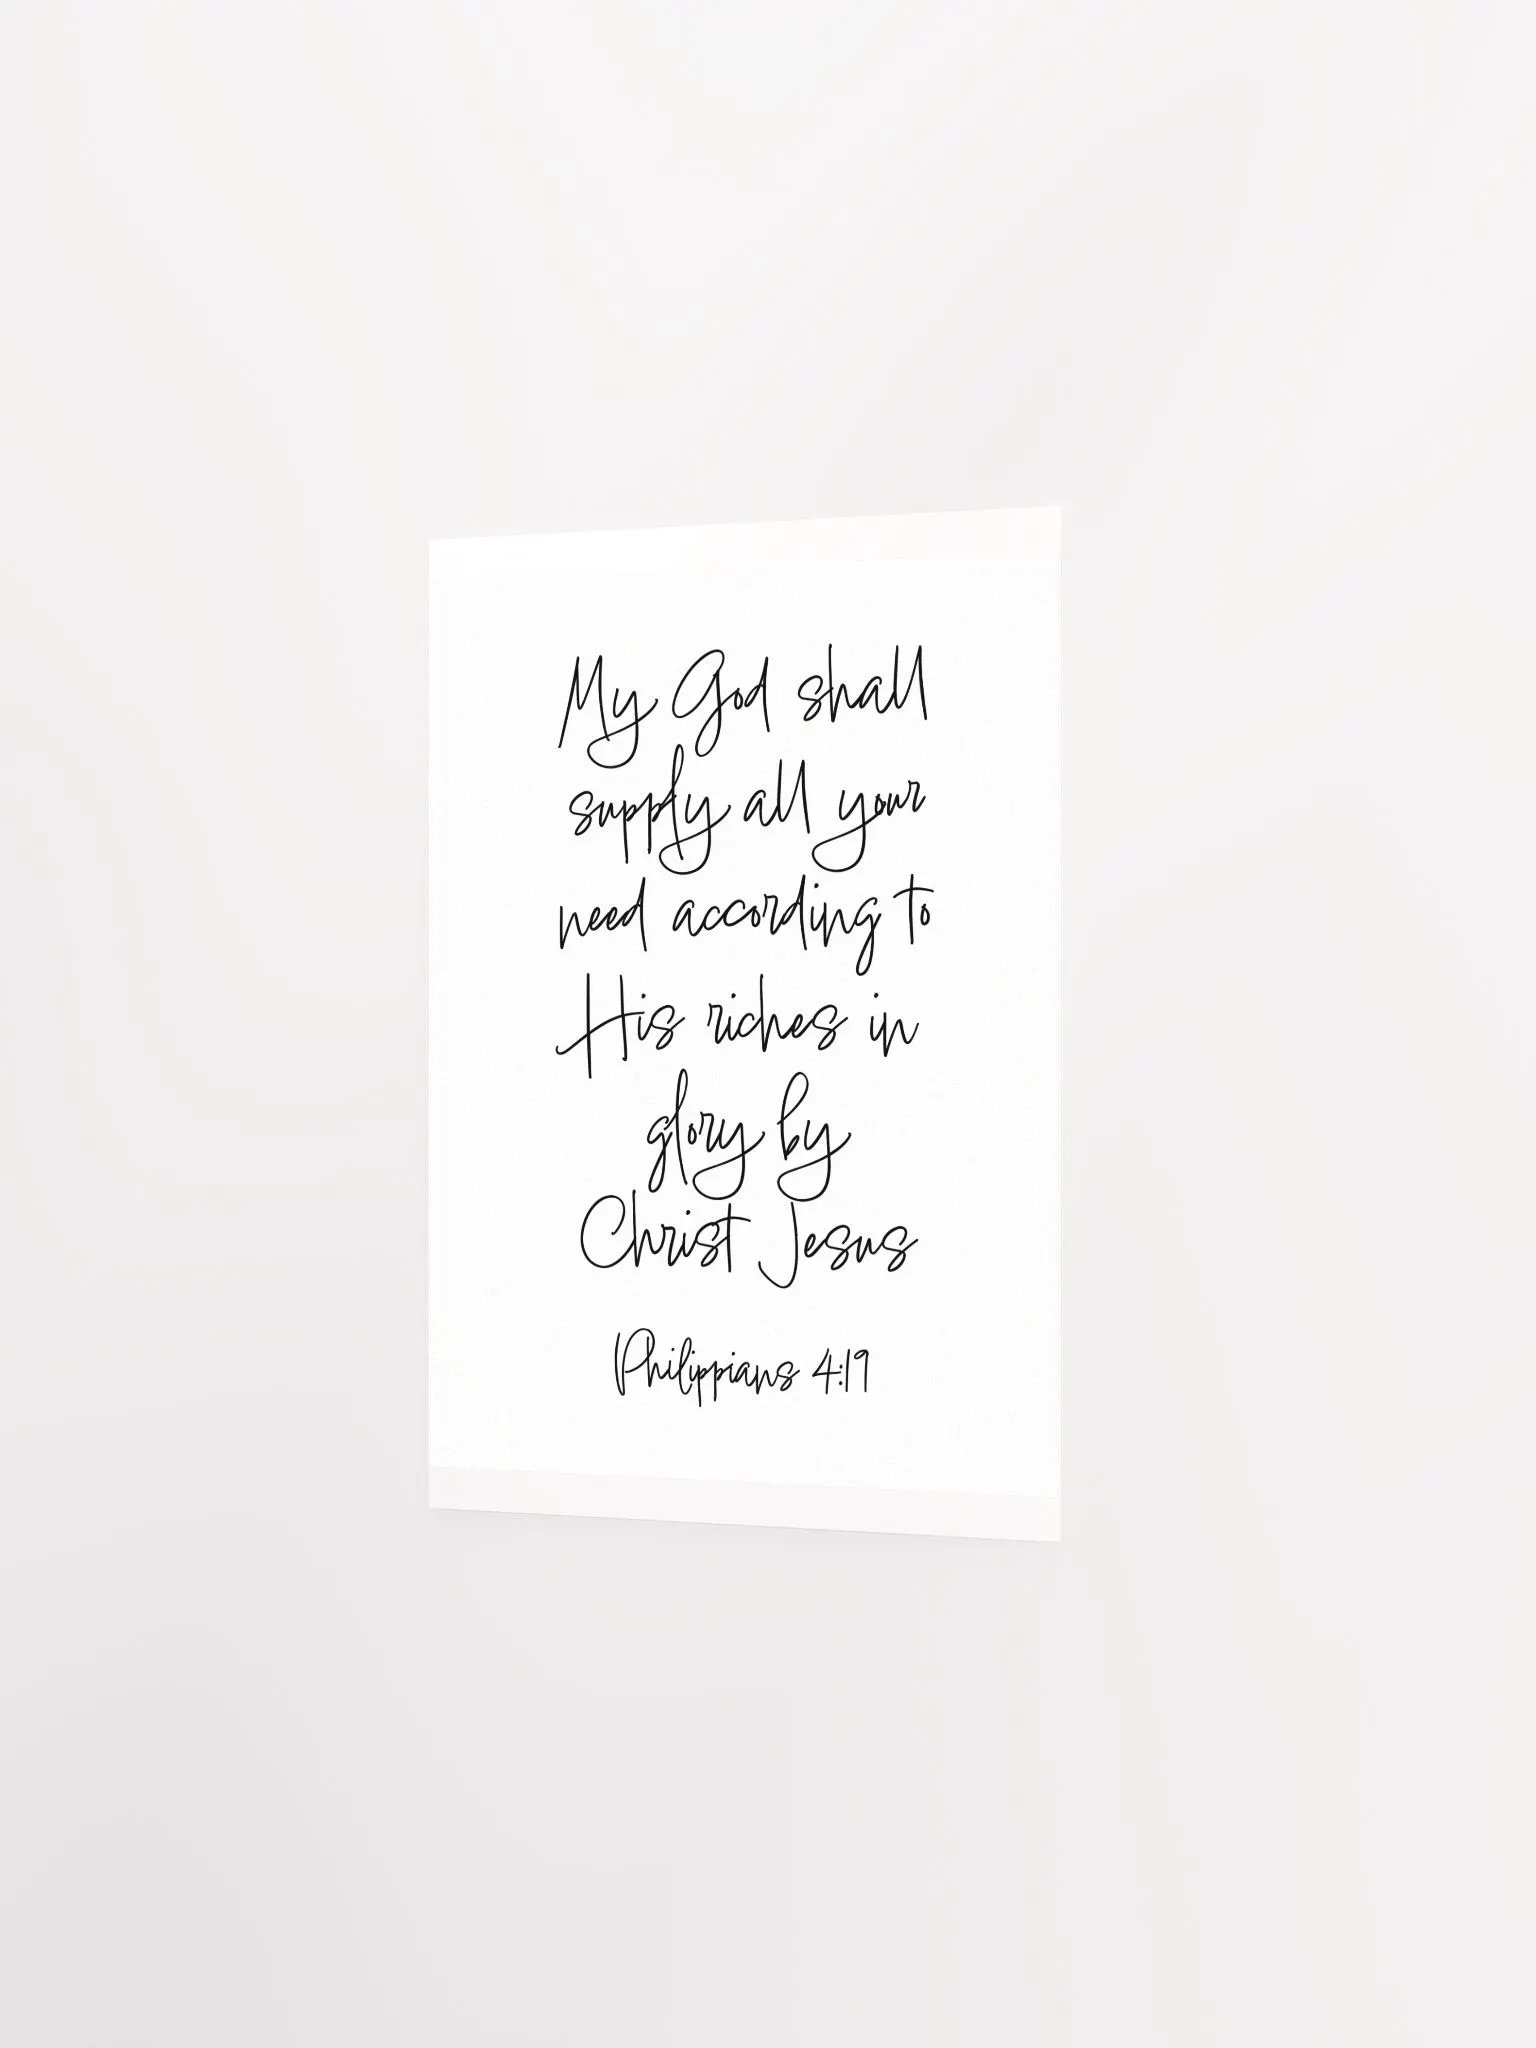 My God shall
supply all your
need according to
His riches in
glory by
Christ Jesus
Philippians 4:19